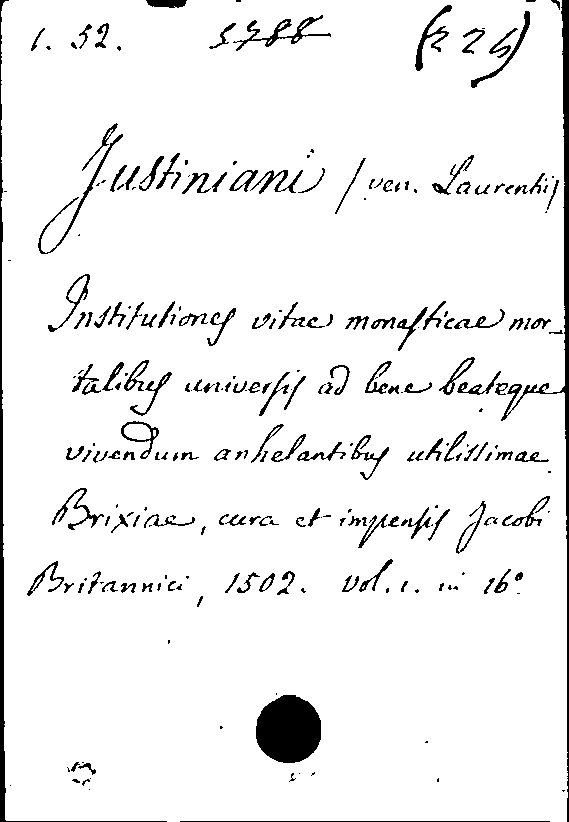 1. 52. 5788 (226)
Justiniani (ven. Laurentii)
Institutiones vitae monasticae mor-
talibus universis ad bene beateque
vivendum anhelantibus utilissimae
Brixiae, cura et impensis Jacobi
Britannici, 1502. vol. 1. in 16°